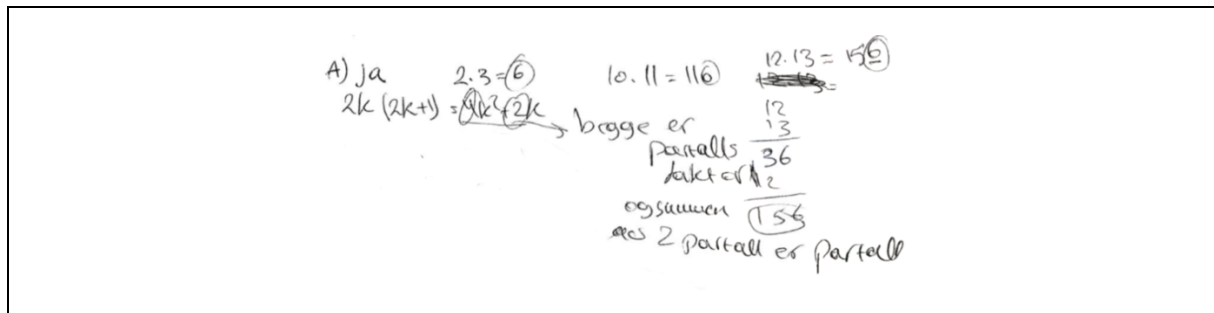 A) ja 2·3=6 10·11=116 12·13=156
2k(2k+1) = 4k²+2k → begge er
partalls
faktor
og summen
av 2 partall er partall
12
13
36
12
156